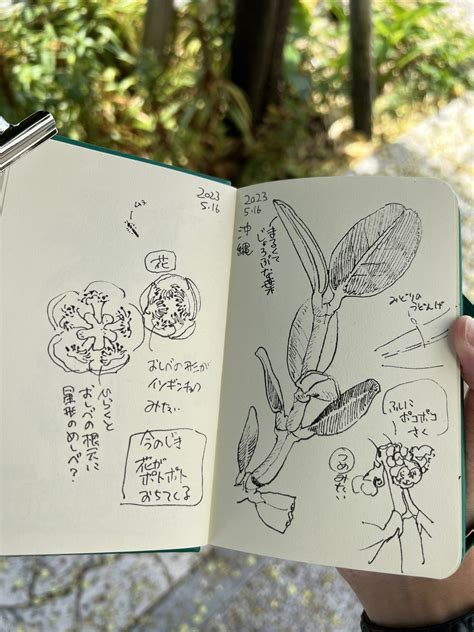 2023
5.16
花
おしべの形が
イソギンチャク
みたい
ひらくと
おしべの根元に
星形のめしべ？
今のじき
花が
ポトポト
おちてくる
2023
5.16
沖縄
まるくて
じょうぶな葉
みどりの
うどんげ
ふしに
ポコポコ
さく
うめみたい